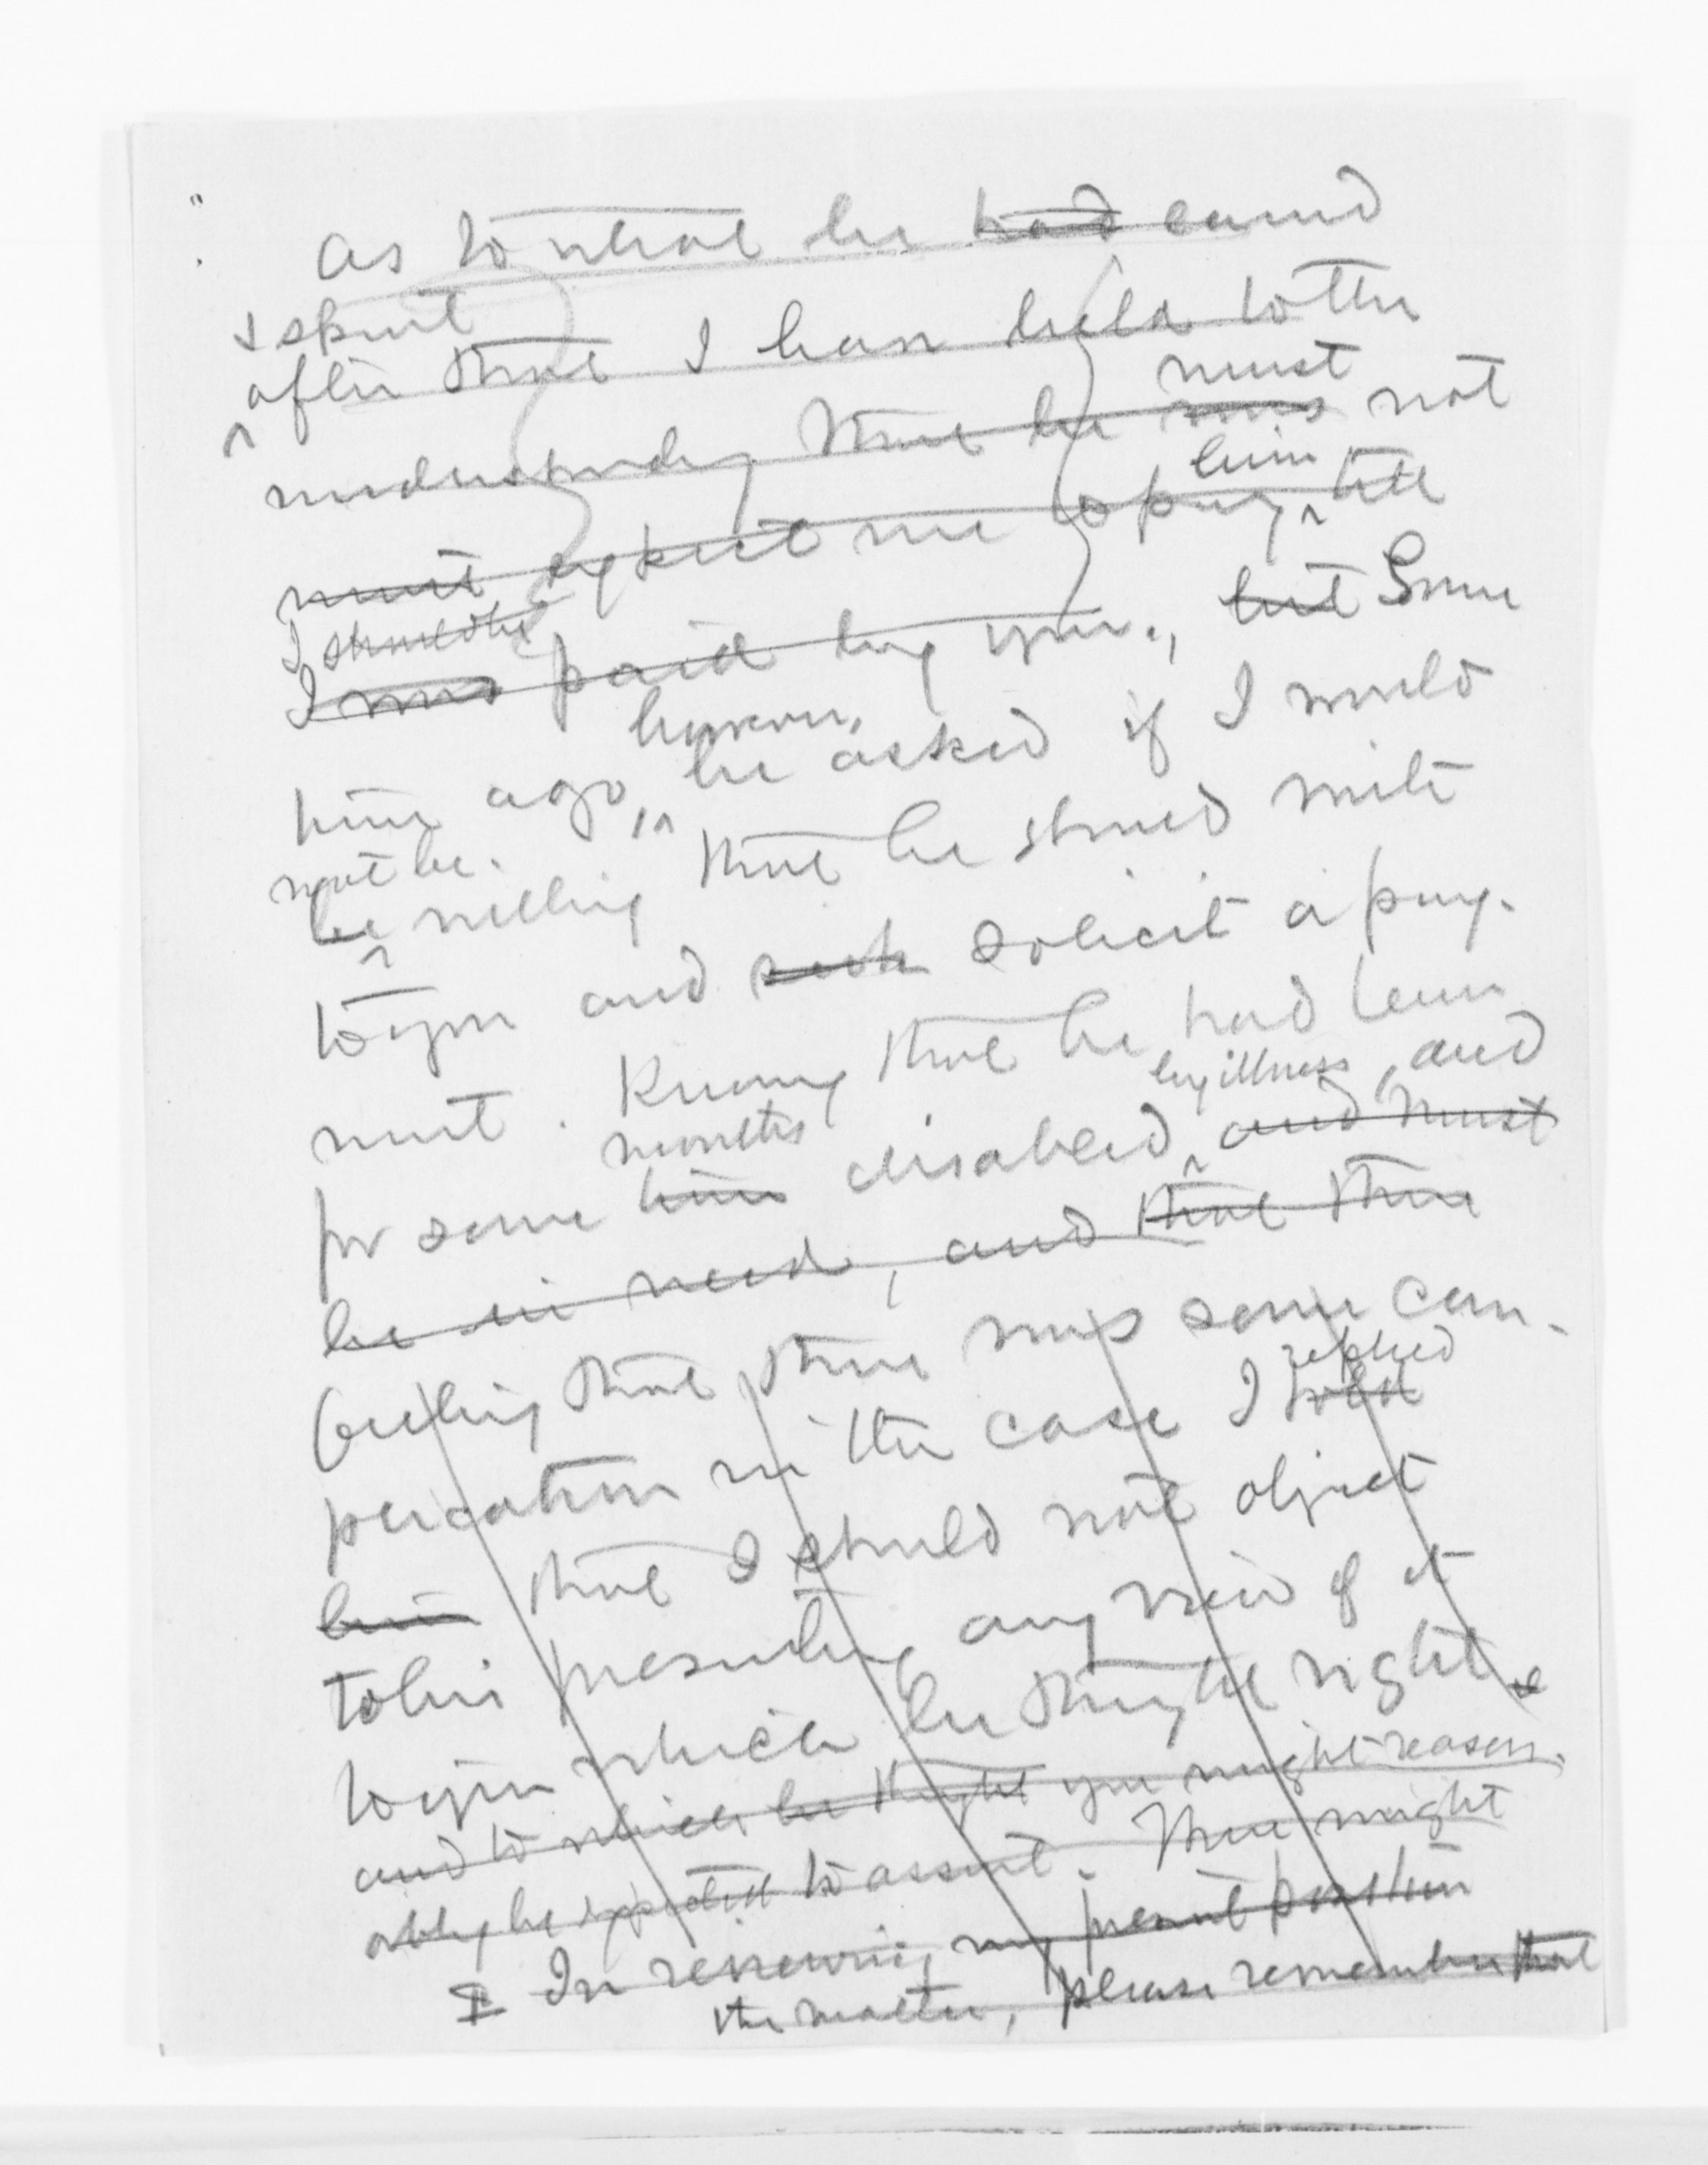 As to what he had earned
& spent
after that I have held to the
must
understanding that he was not
him
must expect me to pay till
I should be
I was paid by you., but Some
however,
time ago, he asked if I would
not be.
be willing that he should write
to you and seek solicit a pay-
ment. Knowing that he had been
by illness, and
months
for some time disabled and must
be in need, and that there
feeling that there was some com-
replied
pensation in the case I told
him that I should not object
to his presenting any view of it
to you which he thought right &
and to which he thought you might reason-
ably be expected to assent. There might
I In reviewing my present position
the matter, please remember that